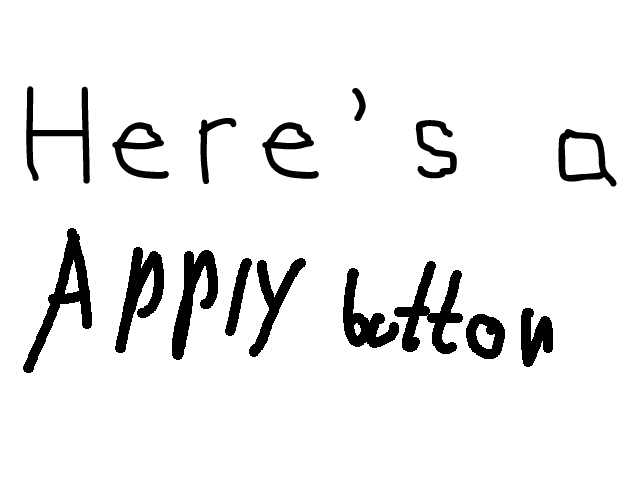 Here's a
Apply button